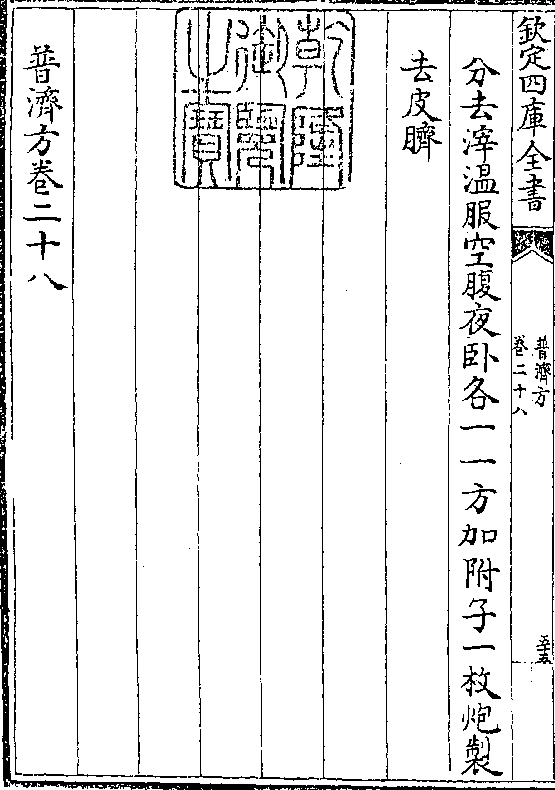 欽定四庫全書
普濟方
卷二十八
五十五
分去滓温服空腹夜卧各一一方加附子一枚炮製
去皮臍
乾隆
御覽
之寶
普濟方卷二十八